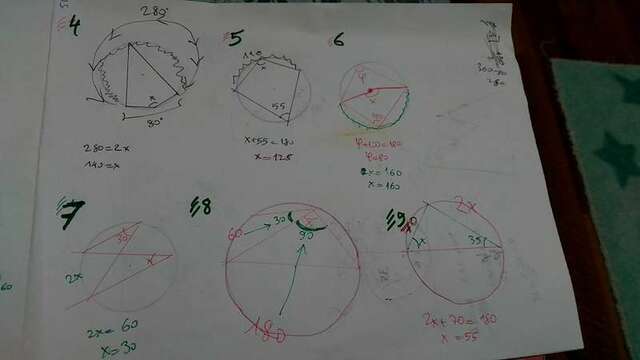 4
280°
80°
280=2x
140=x
5
110
x
55
x+55=180
x=125
6
φ
x
φ+100=180
φ=80
2x=160
x=160
7
30
x
2x
2x=60
x=30
8
60
30
90
180
9
2x
x
35
2x+70=180
x=55